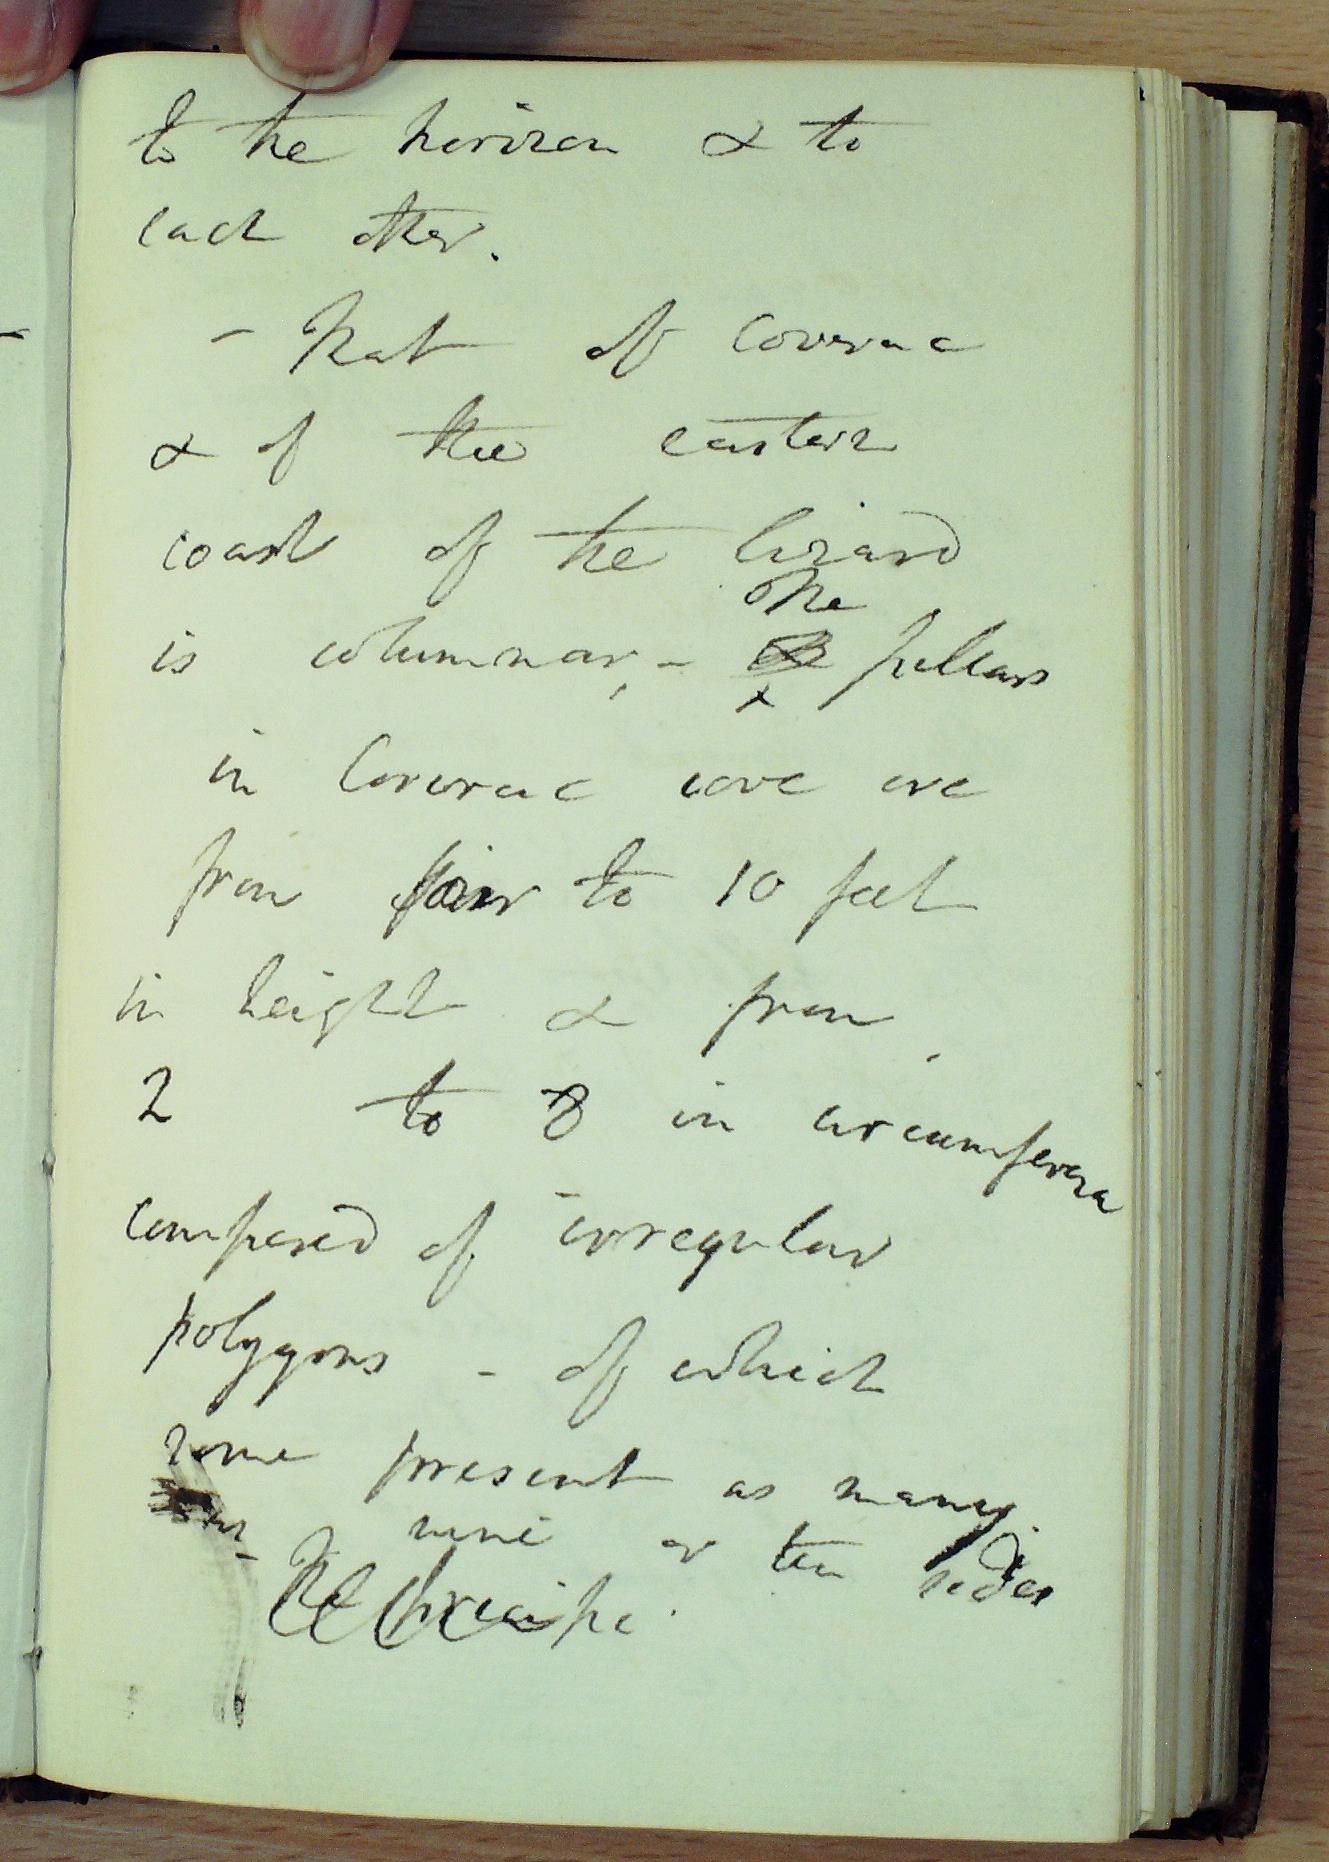 to the horizon & to
each other.
- That of Coverac
& of the eastern
coast of the lizard
is columnar, - The pillars
in Coverac cove are
from four to 10 feet
in height & from
2 to 8 in circumferen
composed of irregular
polygons - of which
some present as many
as nine or ten sides
The